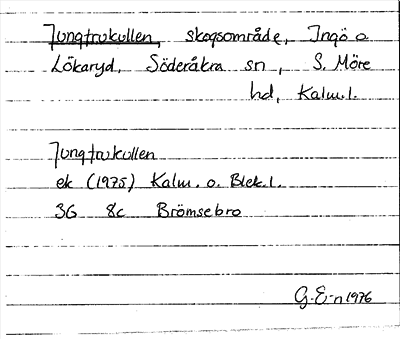 Jungfrukullen, skogsområde, Ingö o
Lökaryd, Söderåkra sn, S. Möre
hd, Kalm.l.
Jungfrukullen
ek (1975) Kalm. o. Blek.l.
3G 8c Brömsebro
G.E-n 1976